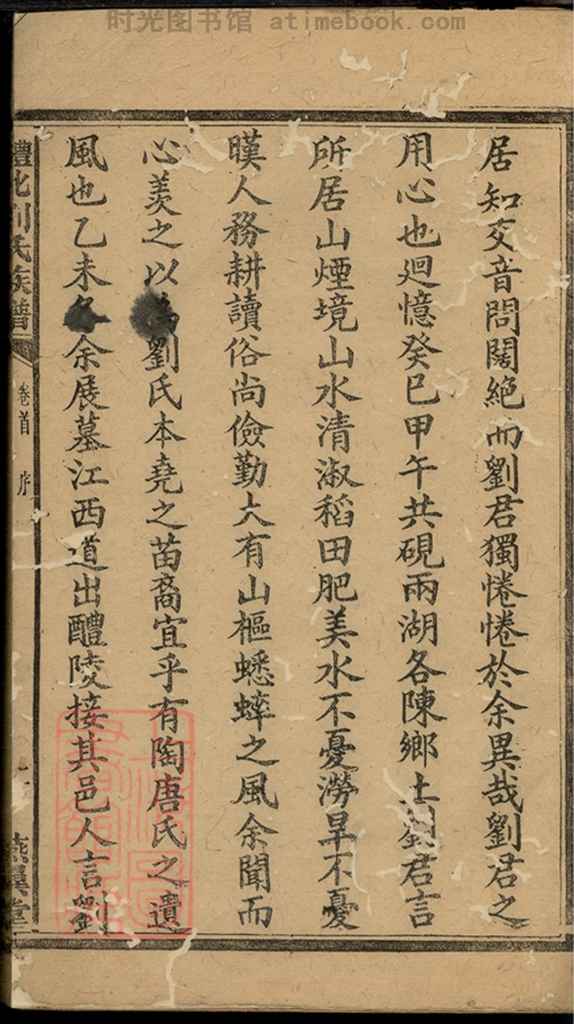 时光图书馆 atimebook.com
居知交音問闊絶而劉君獨惓惓於余異哉劉君之
用心也廻憶癸巳甲午共硯兩湖各陳鄉土劉君言
所居山煙境山水清淑稻田肥美水不憂澇旱不憂
暵人務耕讀俗尚儉勤大有山樞蟋蟀之風余聞而
心羨之以為劉氏本堯之苗裔宜乎有陶唐氏之遺
風也乙未冬余展墓江西道出醴陵接其邑人言劉
醴北劉氏族譜
卷首 序